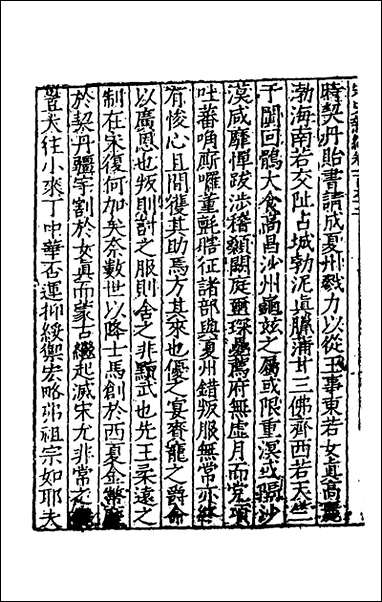 時契丹貽書請成夏州戮力以從王事東若女真高麗
渤海南若交阯占城勃泥眞臘蒲甘三佛齊西若天竺
于闐回鶻大食高昌沙州龜玆之屬或限重溟或隔沙
漠咸靡憚跋涉稽顙闕庭踵琛疊薦府無虛月而党項
吐蕃唃厮囉董氊瞎征諸部與夏州錯叛服無常亦終
有悛心且間獲其助焉方其來也優之宴賚寵之爵命
以廣恩也叛則討之服則舍之非黷武也先王柔遠之
制在宋復何加矣奈數世以降士馬創於西夏金幣
於契丹疆宇割於女眞而蒙古繼起滅宋尤非常
豈大往小來丁中華否運抑綏禦宏略弗祖宗如耶夫